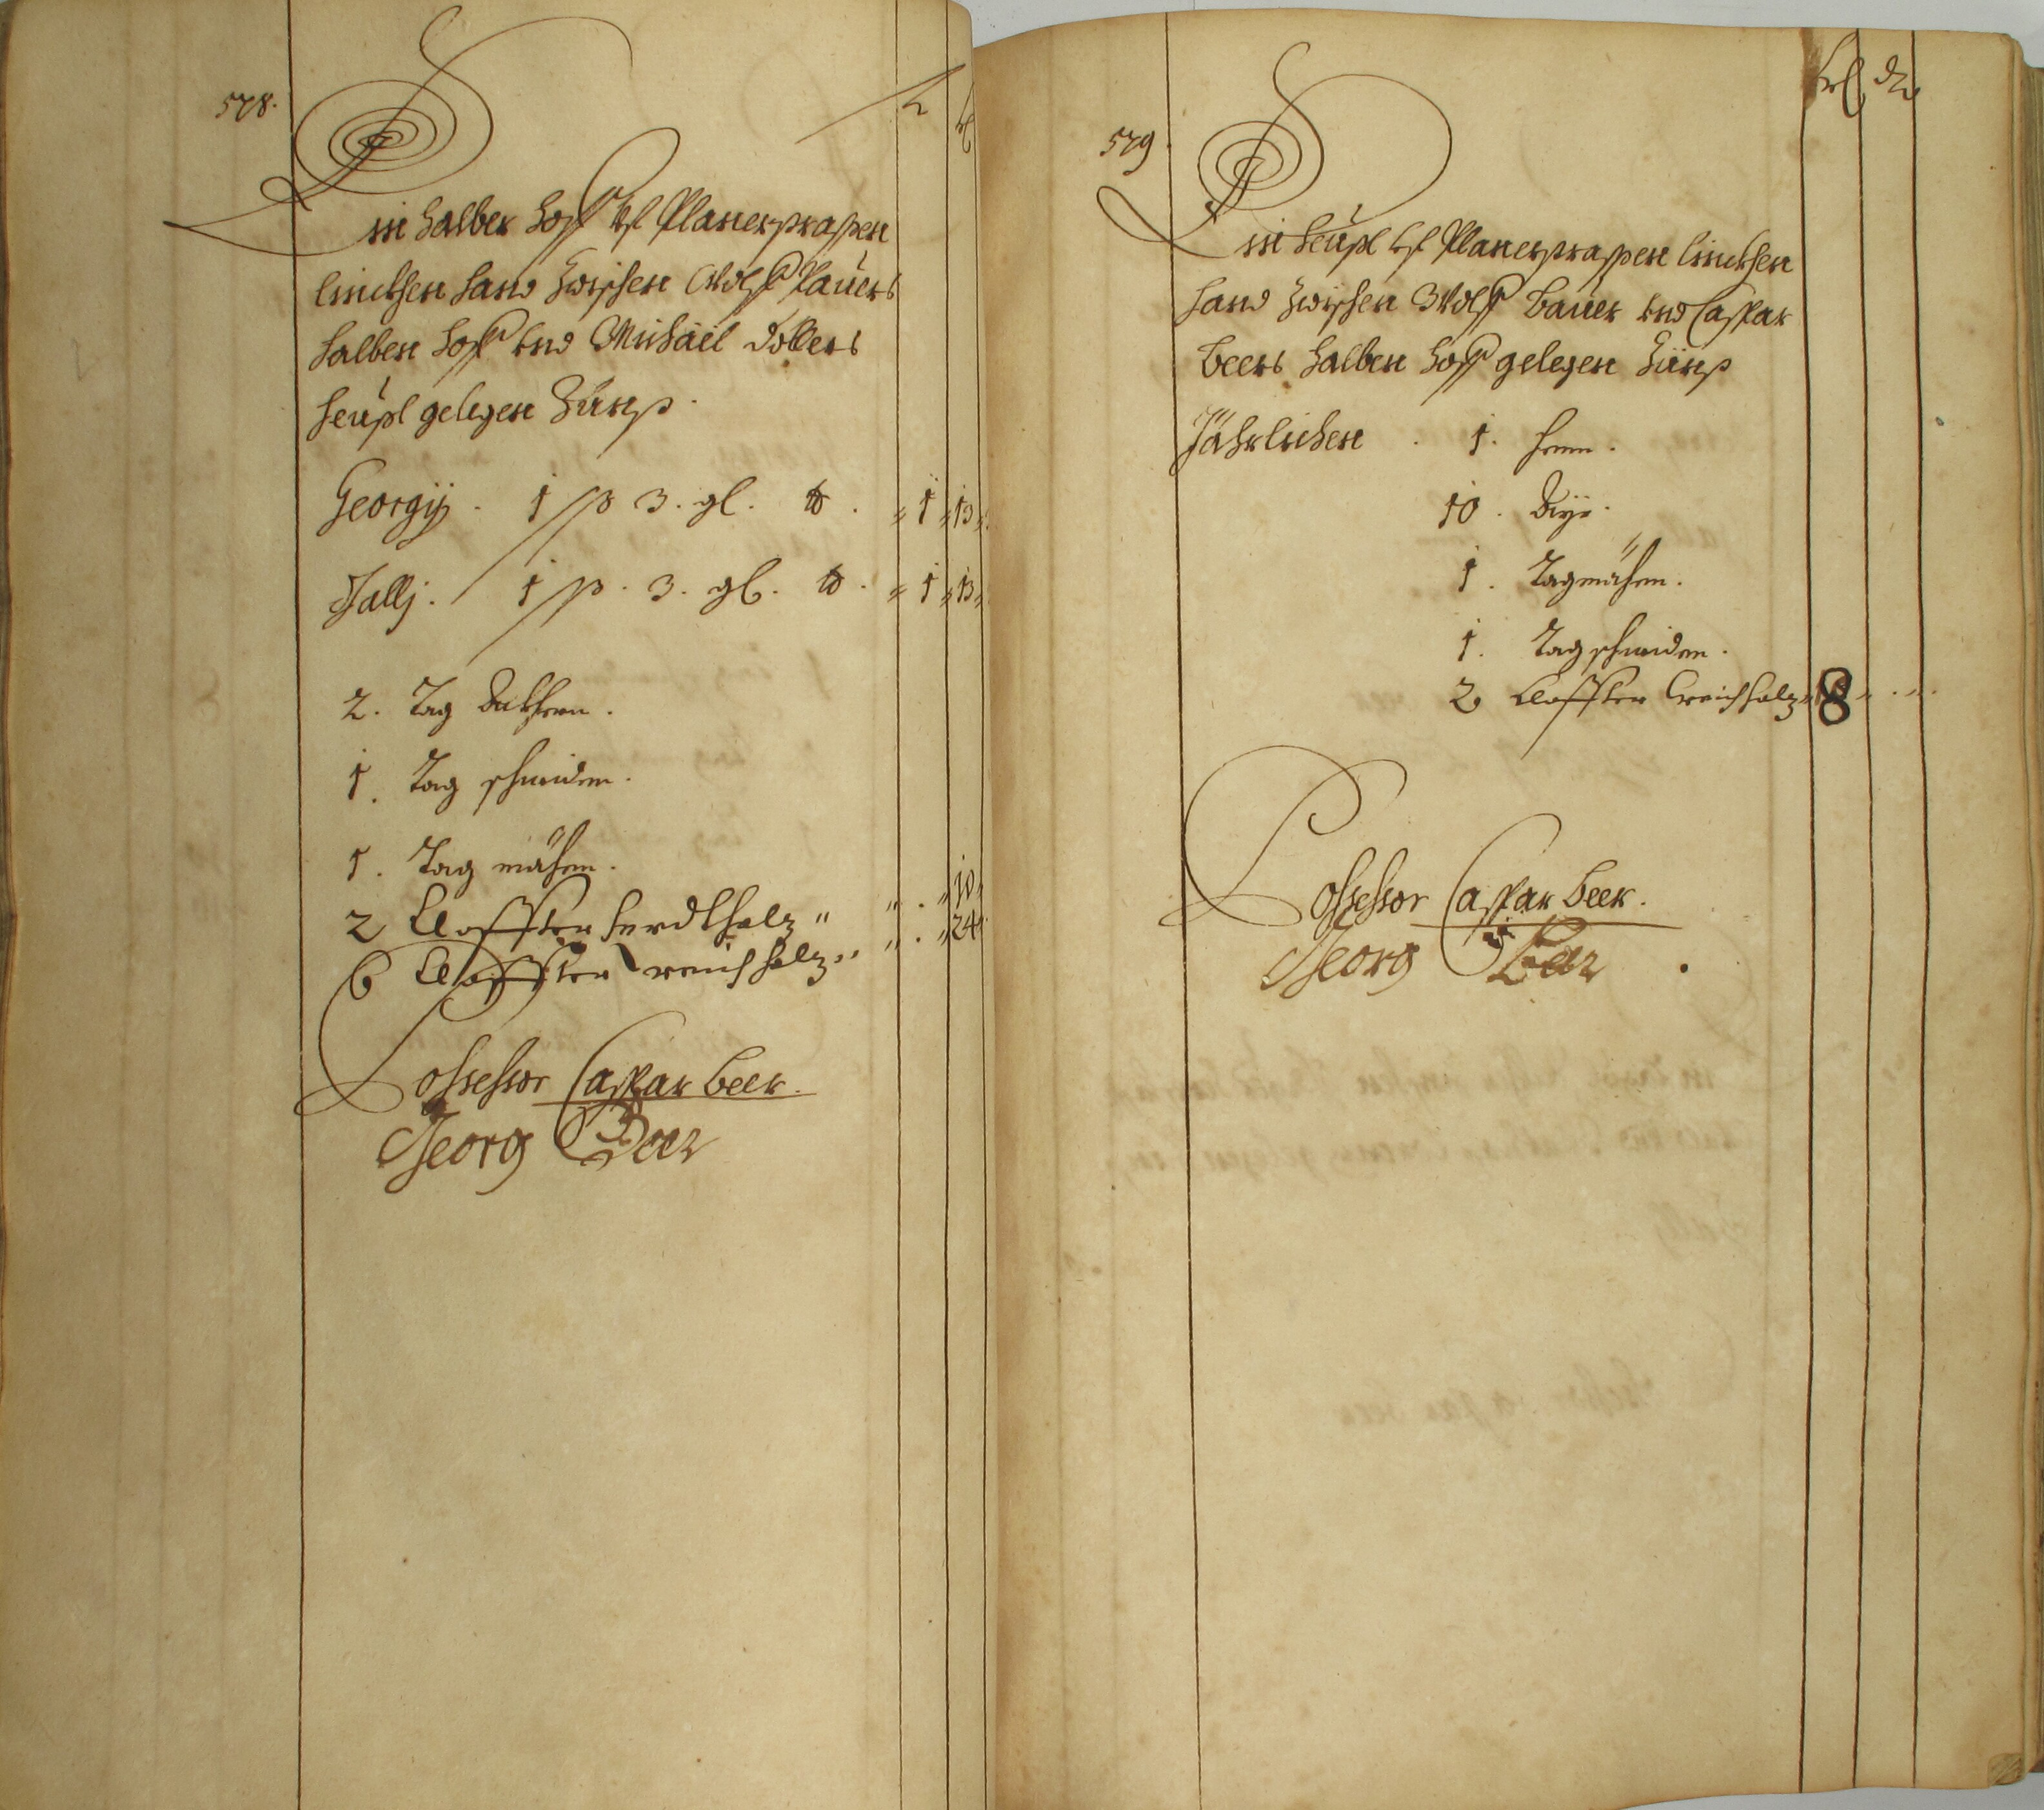 578.
Ein halber Hoff vf Planerstrassen
linckhen hand zwischen Wolff Pauers
halben Hoff vnd Michäel Dollers
heüsl gelegen Zünst.
Georgij . 1 ß 3. gl. " 1 " 13 "
Gallj . 1 ß . 3. gl. " 1 " 13 "
2. Tag
1. Tag schneiden.
1. Tag mähen.
2 Claffter herdtholz " " . " 10
6 Claffter reichholz " " . " 24
Possessor Caspar beer.
Georg Beer
579
Ein heüsl vf Planerstrassen linckhen
hand zwischen Wolff bauer vnd Caspar
beers halben hoff gelegen Zünst
Jährlichen . 1. henn.
10. Ayr.
1. Tag mähen.
1. Tag schneiden.
2 Claffter reichholz " 8 "
Possessor Caspar beer.
Georg Beer